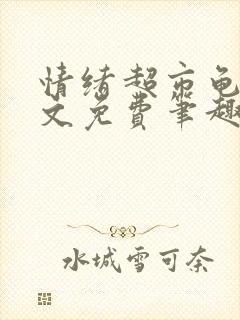 情绪超市龟
文免费笔趣
水城雪可奈